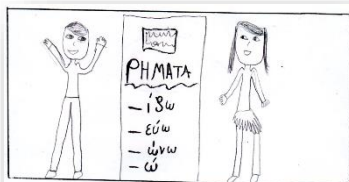 ΡΗΜΑΤΑ
– ίζω
– εύω
– ώνω
– ώ